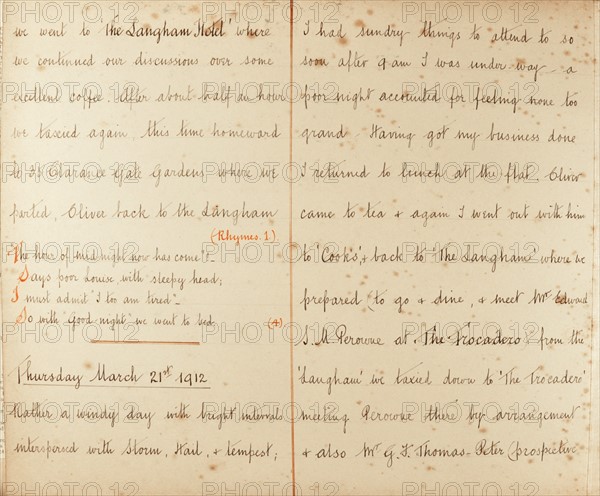 we went to 'the Langham Hotel' where
we continued our discussions over some
excellent coffee. After about half an hour
we taxied again, this time homeward
to Clarence Gate Gardens where we
parted, Oliver back to the Langham
(Rhymes. 1)
The hour of midnight now has come"! –
Says poor Louise with sleepy head;
I must admit 'I too am tired' –
So with 'Good night' we went to bed
(4)
Thursday March 21st 1912
Rather a windy day with bright interval
interspersed with Storm, Hail, & tempest;
I had sundry things to attend to so
soon after 9 am I was under way – a
poor night accounted for feeling none too
grand. Having got my business done
I returned to lunch at the flat. Oliver
came to tea & again I went out with him
to 'Cook's', & back to 'The Langham' where we
prepared (to go & dine, & meet Mr Edward
S. M Perowne at 'The Trocadero': from the
'Langham' we taxied down to 'The Trocadero'
meeting Perowne there by arrangement
& also Mr G. F. Thomas-Peter (prospective
PHOTO12